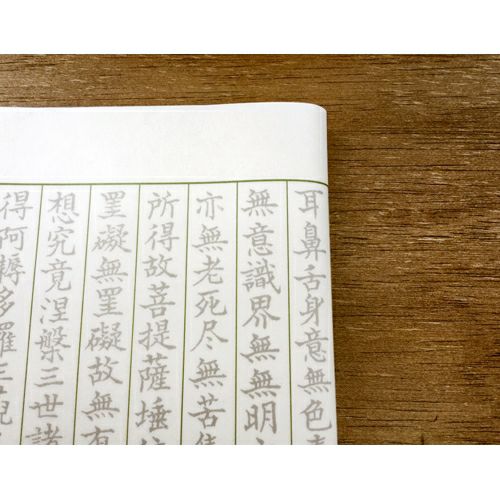 耳鼻舌身意無色
無意識界無無明
亦無老死尽無苦
所得故菩提薩埵
罣礙無罣礙故無有
想究竟涅槃三世諸
得阿耨多羅三